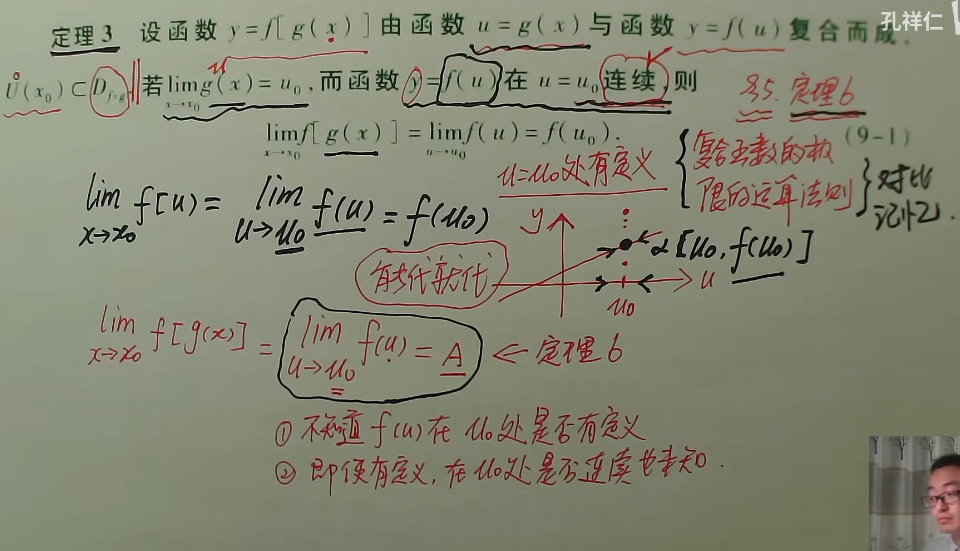 孔祥仁
定理3 设函数 y=f[g(x)]由函数 u=g(x)与函数 y=f(u)复合而成,
Ů(x₀)⊂D_{f∘g} 若lim_{x→x₀}g(x)=u₀,而函数 y=f(u)在 u=u₀连续,则
§5.定理6
lim_{x→x₀}f[g(x)]=lim_{u→u₀}f(u)=f(u₀). (9-1)
u=u₀处有定义
复合函数的极
限的运算法则
对比
记忆.
lim_{x→x₀} f[u)= lim_{u→u₀} f(u)=f(u₀)
y
[u₀,f(u₀)]
u
u₀
有代就代
lim_{x→x₀} f[g(x)] = lim_{u→u₀} f(u)=A ← 定理6
① 不知道f(u)在u₀处是否有定义
② 即使有定义,在u₀处是否连续也未知.